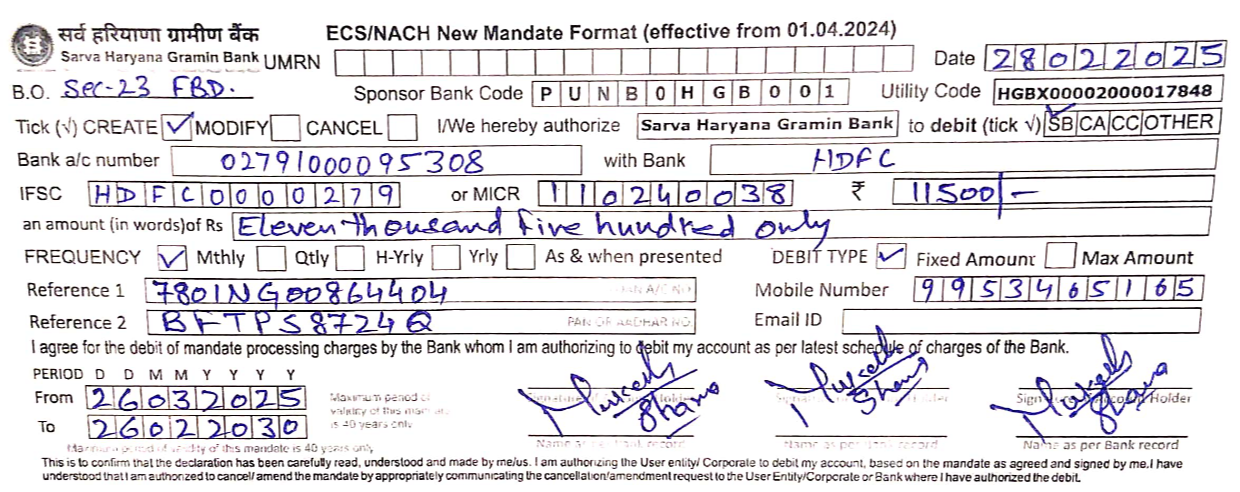 सर्व हरियाणा ग्रामीण बैंक ECS/NACH New Mandate Format (effective from 01.04.2024)
Sarva Haryana Gramin Bank UMRN Date 28022025
B.O. Sec-23 FBD. Sponsor Bank Code PUNB0HGB001 Utility Code HGBX00002000017848
Tick (√) CREATE ✓ MODIFY CANCEL I/We hereby authorize Sarva Haryana Gramin Bank to debit (tick √) SB CA CC OTHER
Bank a/c number 02791000095308 with Bank HDFC
IFSC HDFC0000279 or MICR 110240038 ₹ 11500/-
an amount (in words)of Rs Eleven thousand five hundred only
FREQUENCY ✓ Mthly Qtly H-Yrly Yrly As & when presented DEBIT TYPE ✓ Fixed Amount Max Amount
Reference 1 7801NG00864404 Mobile Number 9953465165
Reference 2 BFTPS8724Q PAN OR AADHAR NO. Email ID
I agree for the debit of mandate processing charges by the Bank whom I am authorizing to debit my account as per latest schedule of charges of the Bank.
PERIOD D D M M Y Y Y Y
From 26032025 Maximum period of validity of this mandate is 40 years only
To 26022030
Maximum period of validity of this mandate is 40 years only Name as per Bank record Name as per Bank record Name as per Bank record
This is to confirm that the declaration has been carefully read, understood and made by me/us. I am authorizing the User entity/ Corporate to debit my account, based on the mandate as agreed and signed by me.I have
understood that I am authorized to cancel/amend the mandate by appropriately communicating the cancellation/amendment request to the User Entity/Corporate or Bank where I have authorized the debit.